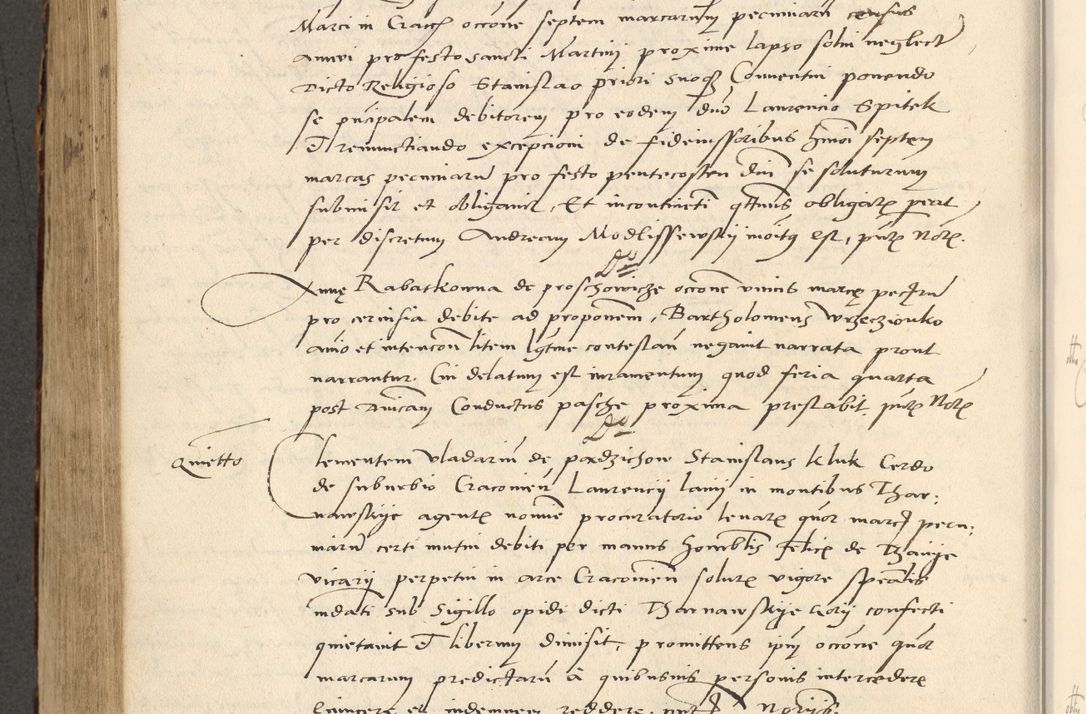 Marci in Crac occone septem marcarum pecuniarii census
annui pro festo sancti Martini proxime lapso solui neglect
Dicto Religioso Stanislao priori suoq Conuentui ponendo
se pncipalem debitorem pro eodem dno Laurencio Spitek
et renunctiando excepcioni de fideiussoribus hmoi septem
marcas pecuniarum pro festo pentecosten dni se soluturum
submisit et obligauit, Et incontinenti qtenus obligate perit
per discretum Andream Modlissewskij moitq est, pntx Notx.
Do
Annę Rabatkowna de proschowicze occone vnius marcę pectru
pro ceruisia debite ad proponem, Bartholomeus Wrzeczionko
anno et intencon litem lgtime contestan negauit narrata prout
narrantur. Cui delatum est iuramentum quod feria quarta
post Dnicam Conductus pasche proxima prestabit pntx Notx
Do
Quietto
Clementem vladarium de pardzichow Stanislaus kluk Cerdo
de suburbio Cracouien Laurencij lanij in montibus Thar:
nawskije agente nomine procuratorio leuatx quor marc pecu:
niarum certi mutui debiti per manus honorblis felicx de Thanije
vicarij perpetui in arce Cracouien solutx vigore spealis
mdati sub sigillo opidi dicti Tharnawskije liorij confecti
quietauit et liberum dimisit, promittens ipm occone quor
marcarum predictarum a quibusuis personis intercedere
euincere et indemnem reddere, pntx Notorijs